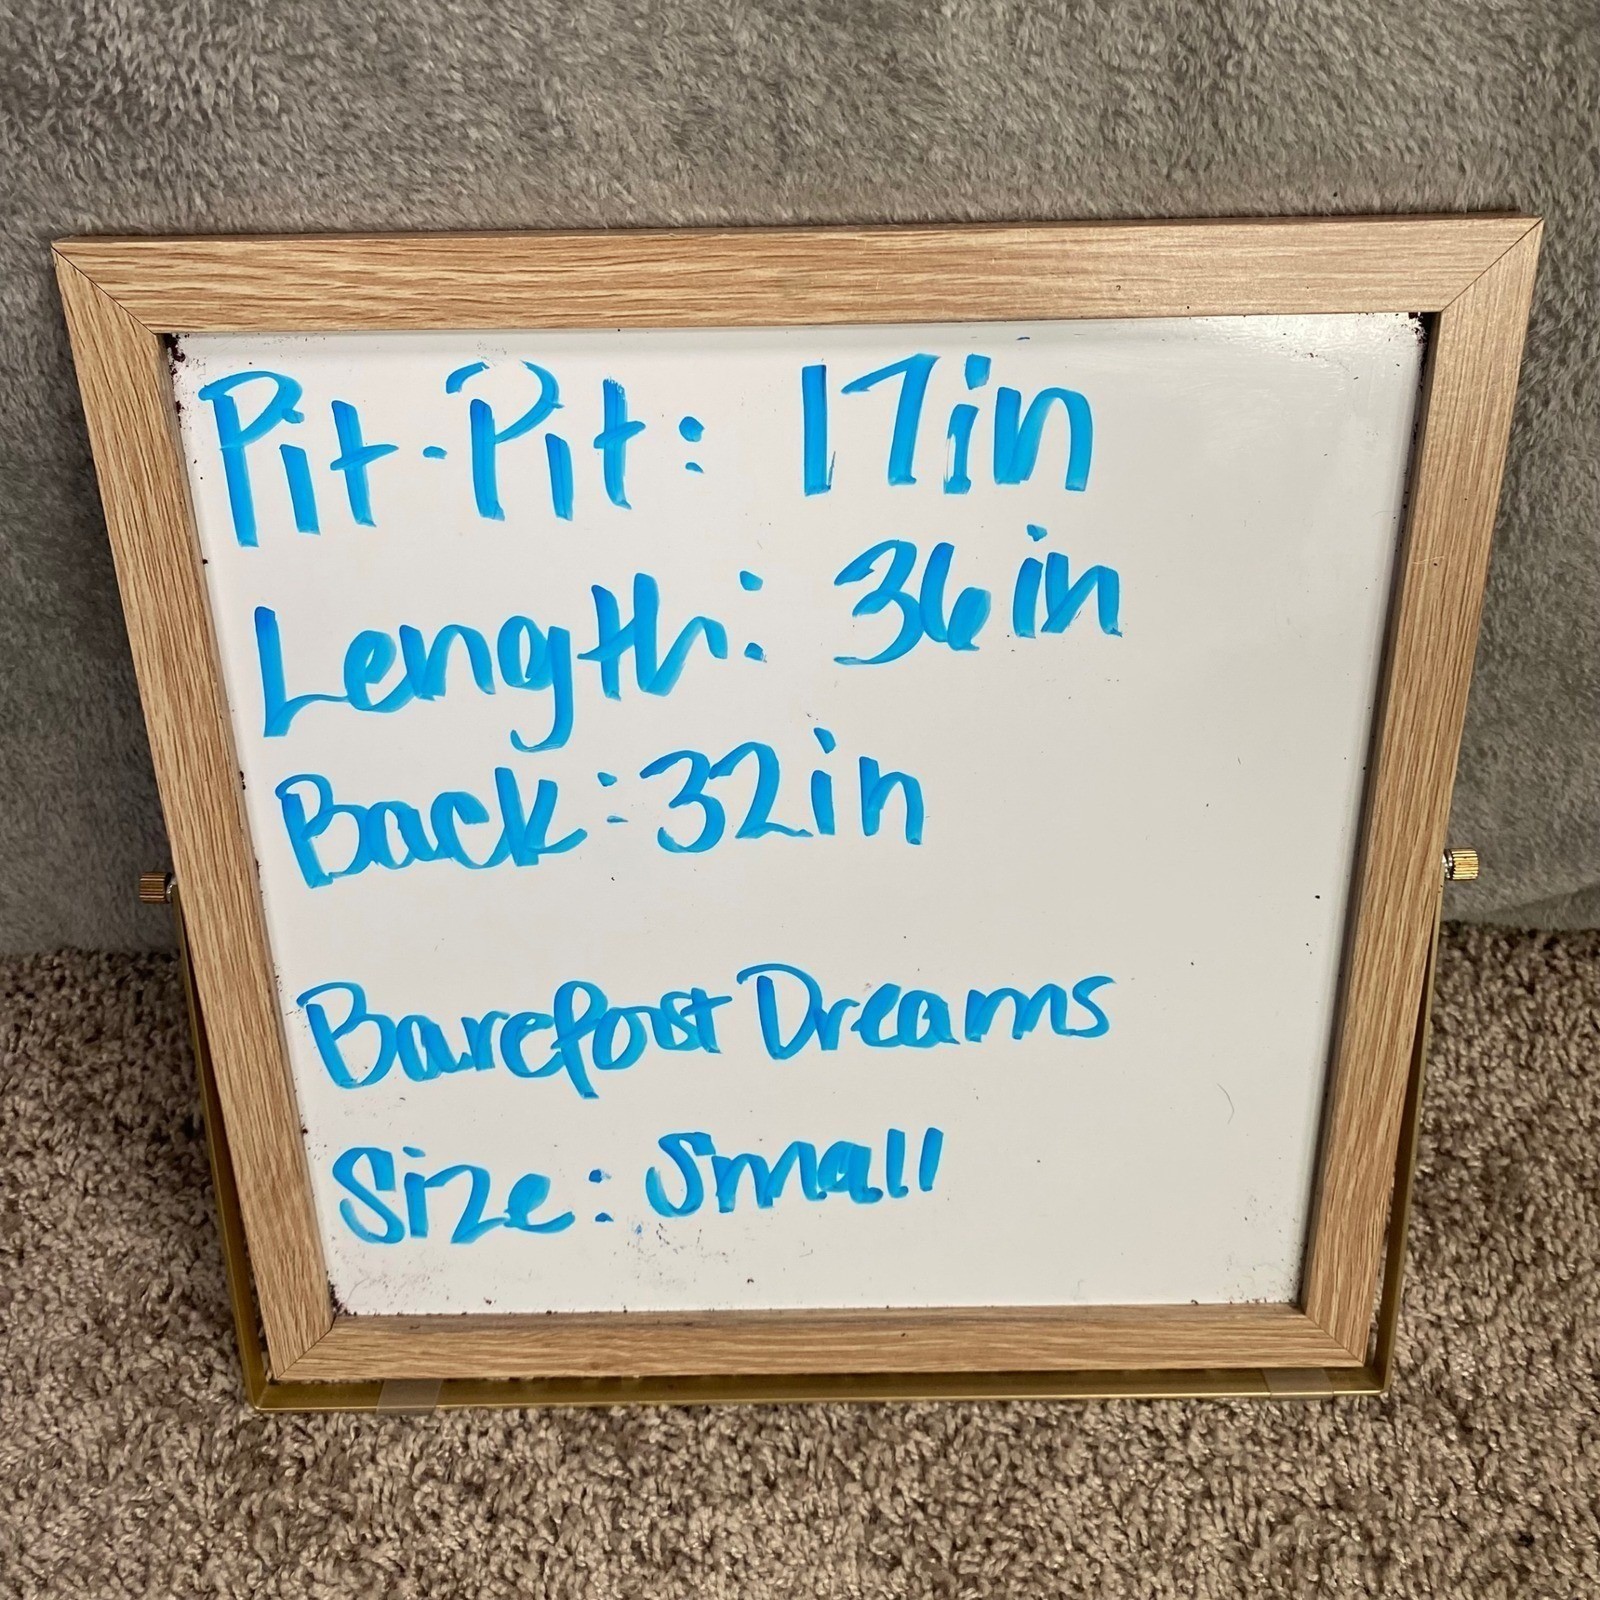 Pit-Pit: 17in
Length: 36in
Back: 32in
Barefoot Dreams
Size: Small